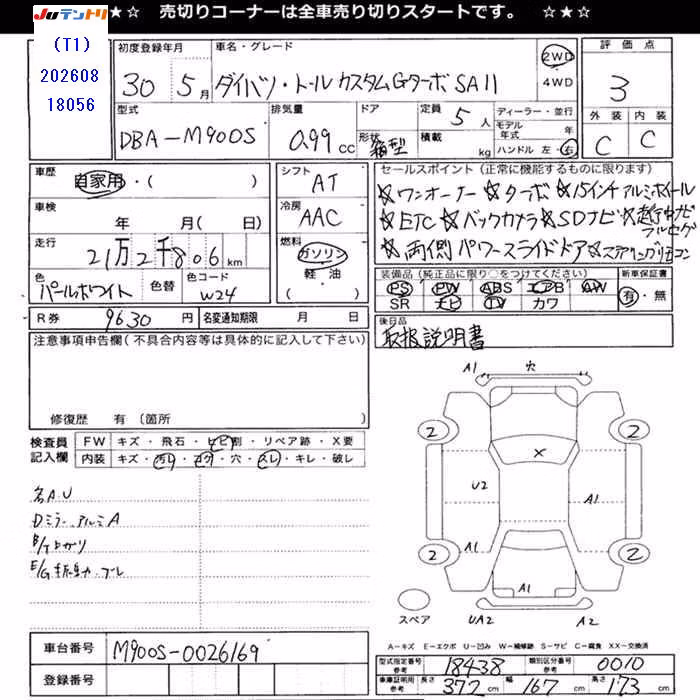 JUテントリ ★☆ 売切りコーナーは全車売り切りスタートです。 ☆★☆
(T1)
202608
18056
初度登録年月 車名・グレード
30 5月 ダイハツ・トール カスタムGターボ SAII
2WD
4WD
評価点
3
外装 内装
C C
型式 排気量 ドア 定員 ディーラー・並行
DBA-M900S 0.99 CC 形状 箱型 5人 積載 kg
モデル年式 年
ハンドル 左・右
車歴 自家用・( )
車検 年 月( 日)
走行 21万2千806km
色 パールホワイト 色替 色コード W24
シフト AT
冷房 AAC
燃料 ガソリン
軽油
R券 9630円 名変通知期限 月 日
セールスポイント(正常に機能するものに限ります)
☆ワンオーナー ☆ターボ ☆15インチアルミホイール
☆ETC ☆バックカメラ ☆SDナビ ☆
フルセグ
☆両側パワースライドドア ☆ステアリングリモコン
装備品(純正品に限り○をつけてください) 新車保証書
PS PW ABS エアB AW
SR ナビ TV カワ
有・無
後日品
取扱説明書
注意事項申告欄(不具合内容等は具体的に記入して下さい)
修復歴 有 (箇所 )
検査員記入欄
FW キズ・飛石・ヒビ割・リペア跡・X要
内装 キズ・汚レ・コゲ・穴・スレ・キレ・破レ
各A.U
Dミラー、アルミA
E/G振動・ブレ
A1 穴
2 2
X
U2 A1
A1
2 2
A1
UA2 A2
スペア
A-キズ E-エクボ U-凹み W-補修跡 S-サビ C-腐食 XX-交換済
車台番号 M900S-0026169
登録番号
型式指定番号 参考 18438 類別区分番号 参考 0010
車庫証明用 参考 長さ 372cm 幅 167cm 高さ 173cm